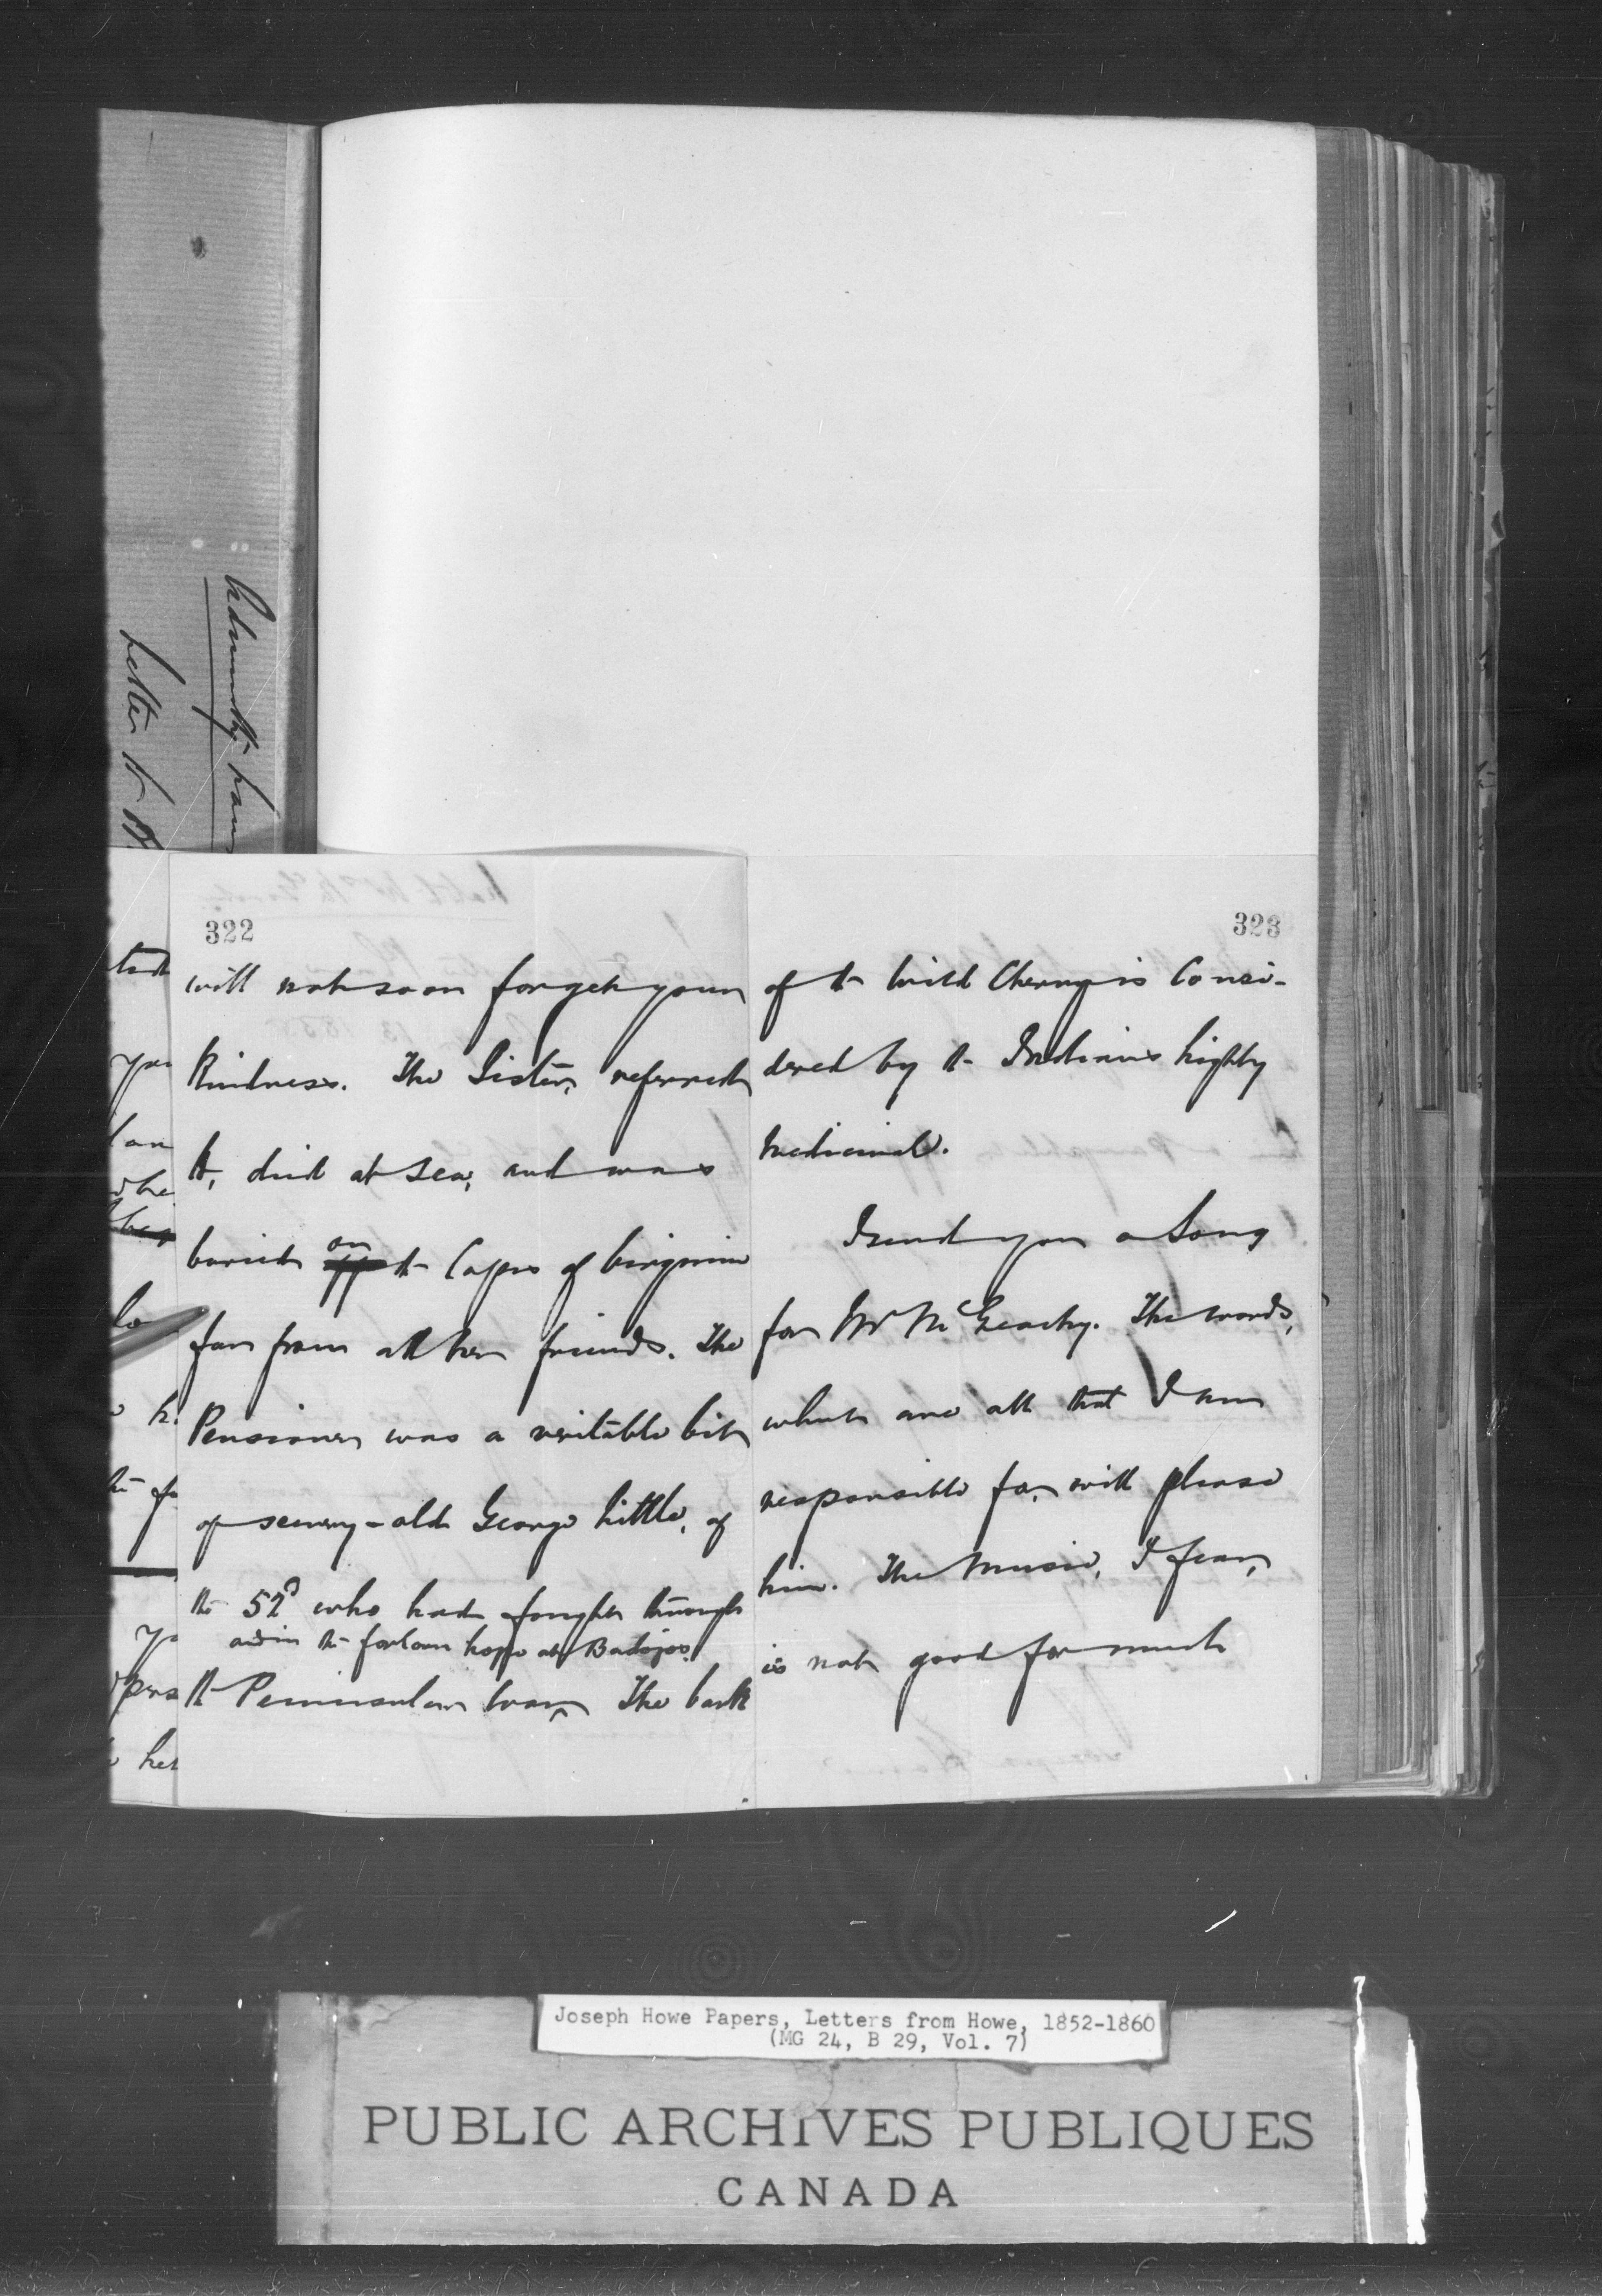 322
will not soon forget your
kindness. The Sister, referred
to, died at sea, and was
buried on off the Capes of Virginia
far from all her friends. The
Pensioner was a veritable bit
of scenery - old George Little, of
the 52d who had fought through
and in the forlorn hope at Badajos.
the Peninsular War ^ The bark
323
of the Wild Cherry is Consi-
dered by the Indians highly
medicinal.
I send you a Song
for Mr McGeachy. The words,
which are all that I am
responsible for, will please
him. The Music, I fear,
is not good for much
Letter to
Joseph Howe Papers, Letters from Howe, 1852-1860
(MG 24, B 29, Vol. 7)
PUBLIC ARCHIVES PUBLIQUES
CANADA